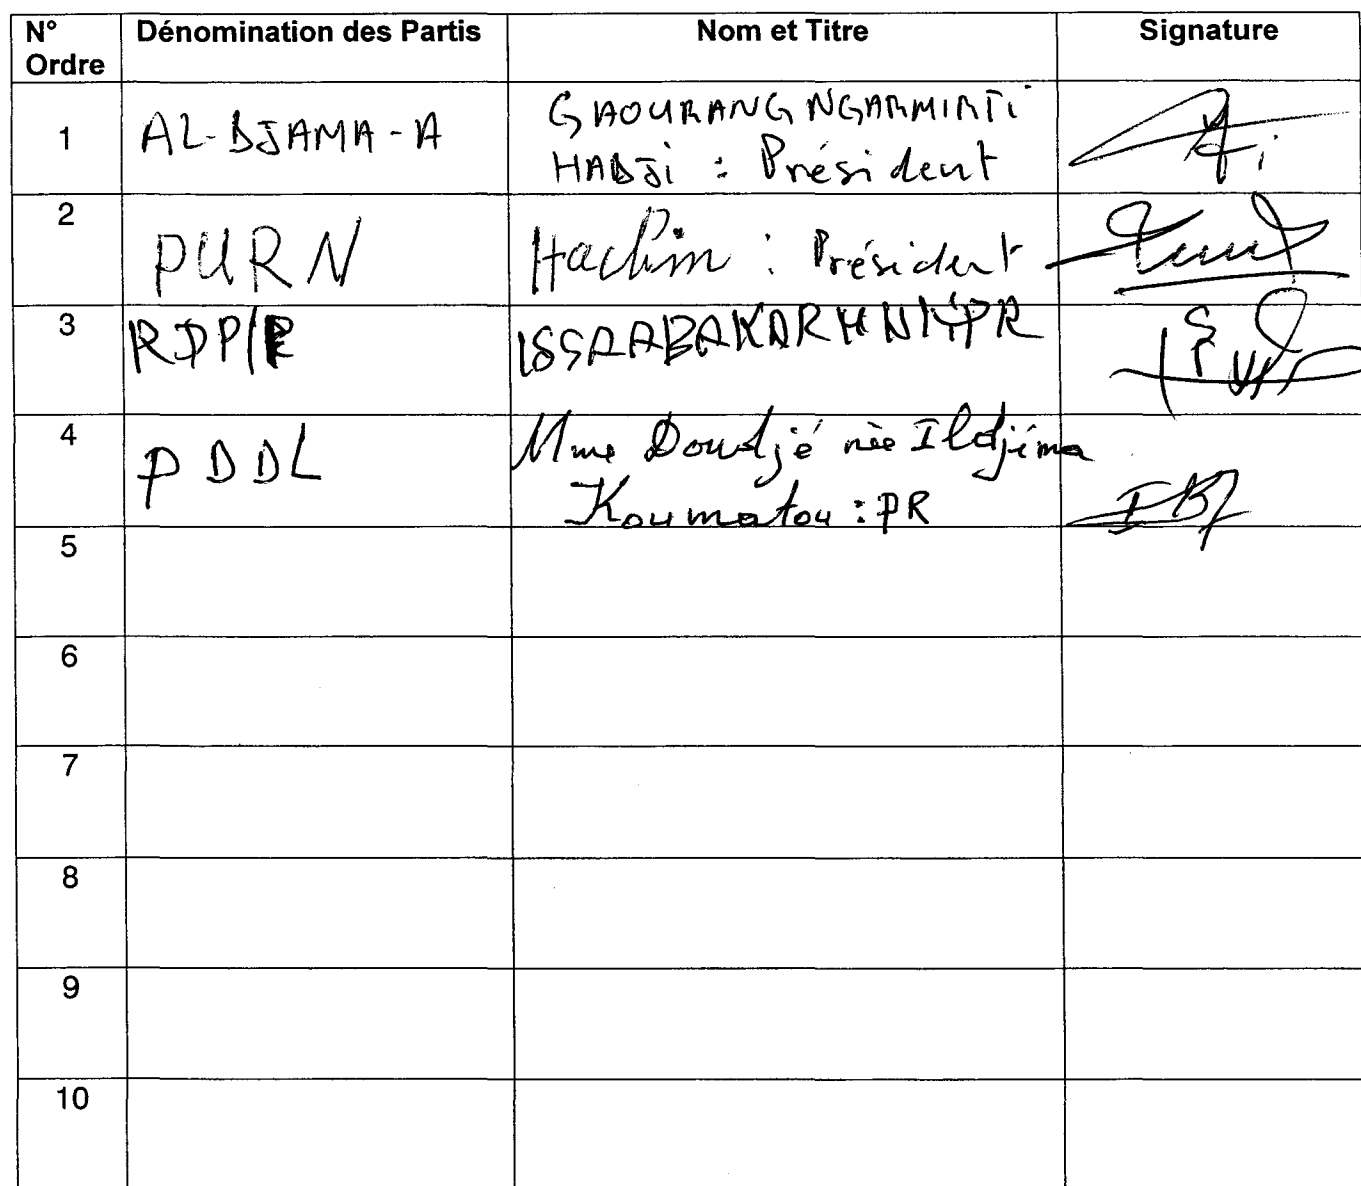 N° Ordre | Dénomination des Partis | Nom et Titre | Signature
1 | AL-DJAMA-A | GAOURANG NGARMIATI
HADJI : Président
2 | PURN | Hachim : Président
3 | RDP/R | ISSA ABAKAR
4 | PDDL | Mme Doudjé née Ildjéma
Koumatou : PR
5
6
7
8
9
10